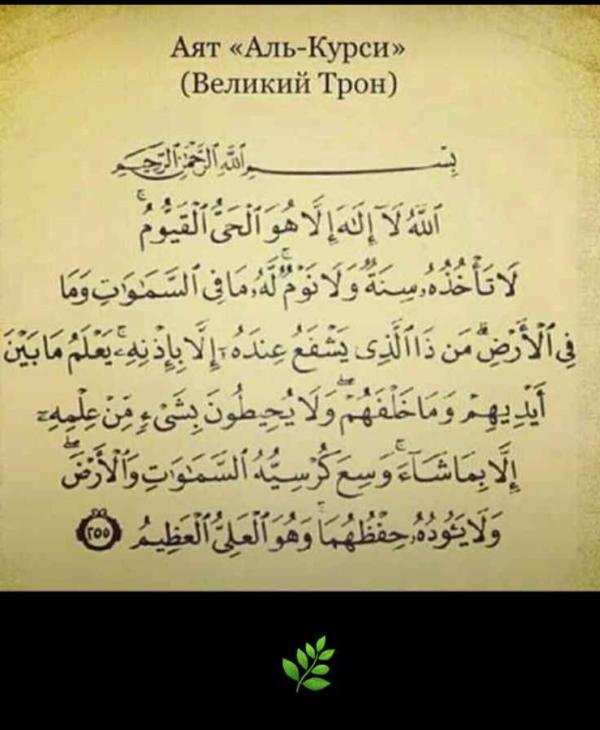 Аят «Аль-Курси»
(Великий Трон)
بِسْمِ اللَّهِ الرَّحْمَٰنِ الرَّحِيمِ
ٱللَّهُ لَآ إِلَٰهَ إِلَّا هُوَ ٱلْحَىُّ ٱلْقَيُّومُ ۚ
لَا تَأْخُذُهُۥ سِنَةٌ وَلَا نَوْمٌ ۚ لَّهُۥ مَا فِى ٱلسَّمَٰوَٰتِ وَمَا
فِى ٱلْأَرْضِ ۗ مَن ذَا ٱلَّذِى يَشْفَعُ عِندَهُۥٓ إِلَّا بِإِذْنِهِۦ ۚ يَعْلَمُ مَا بَيْنَ
أَيْدِيهِمْ وَمَا خَلْفَهُمْ ۖ وَلَا يُحِيطُونَ بِشَىْءٍ مِّنْ عِلْمِهِۦٓ
إِلَّا بِمَا شَآءَ ۚ وَسِعَ كُرْسِيُّهُ ٱلسَّمَٰوَٰتِ وَٱلْأَرْضَ ۖ
وَلَا يَـُٔودُهُۥ حِفْظُهُمَا ۚ وَهُوَ ٱلْعَلِىُّ ٱلْعَظِيمُ ٢٥٥